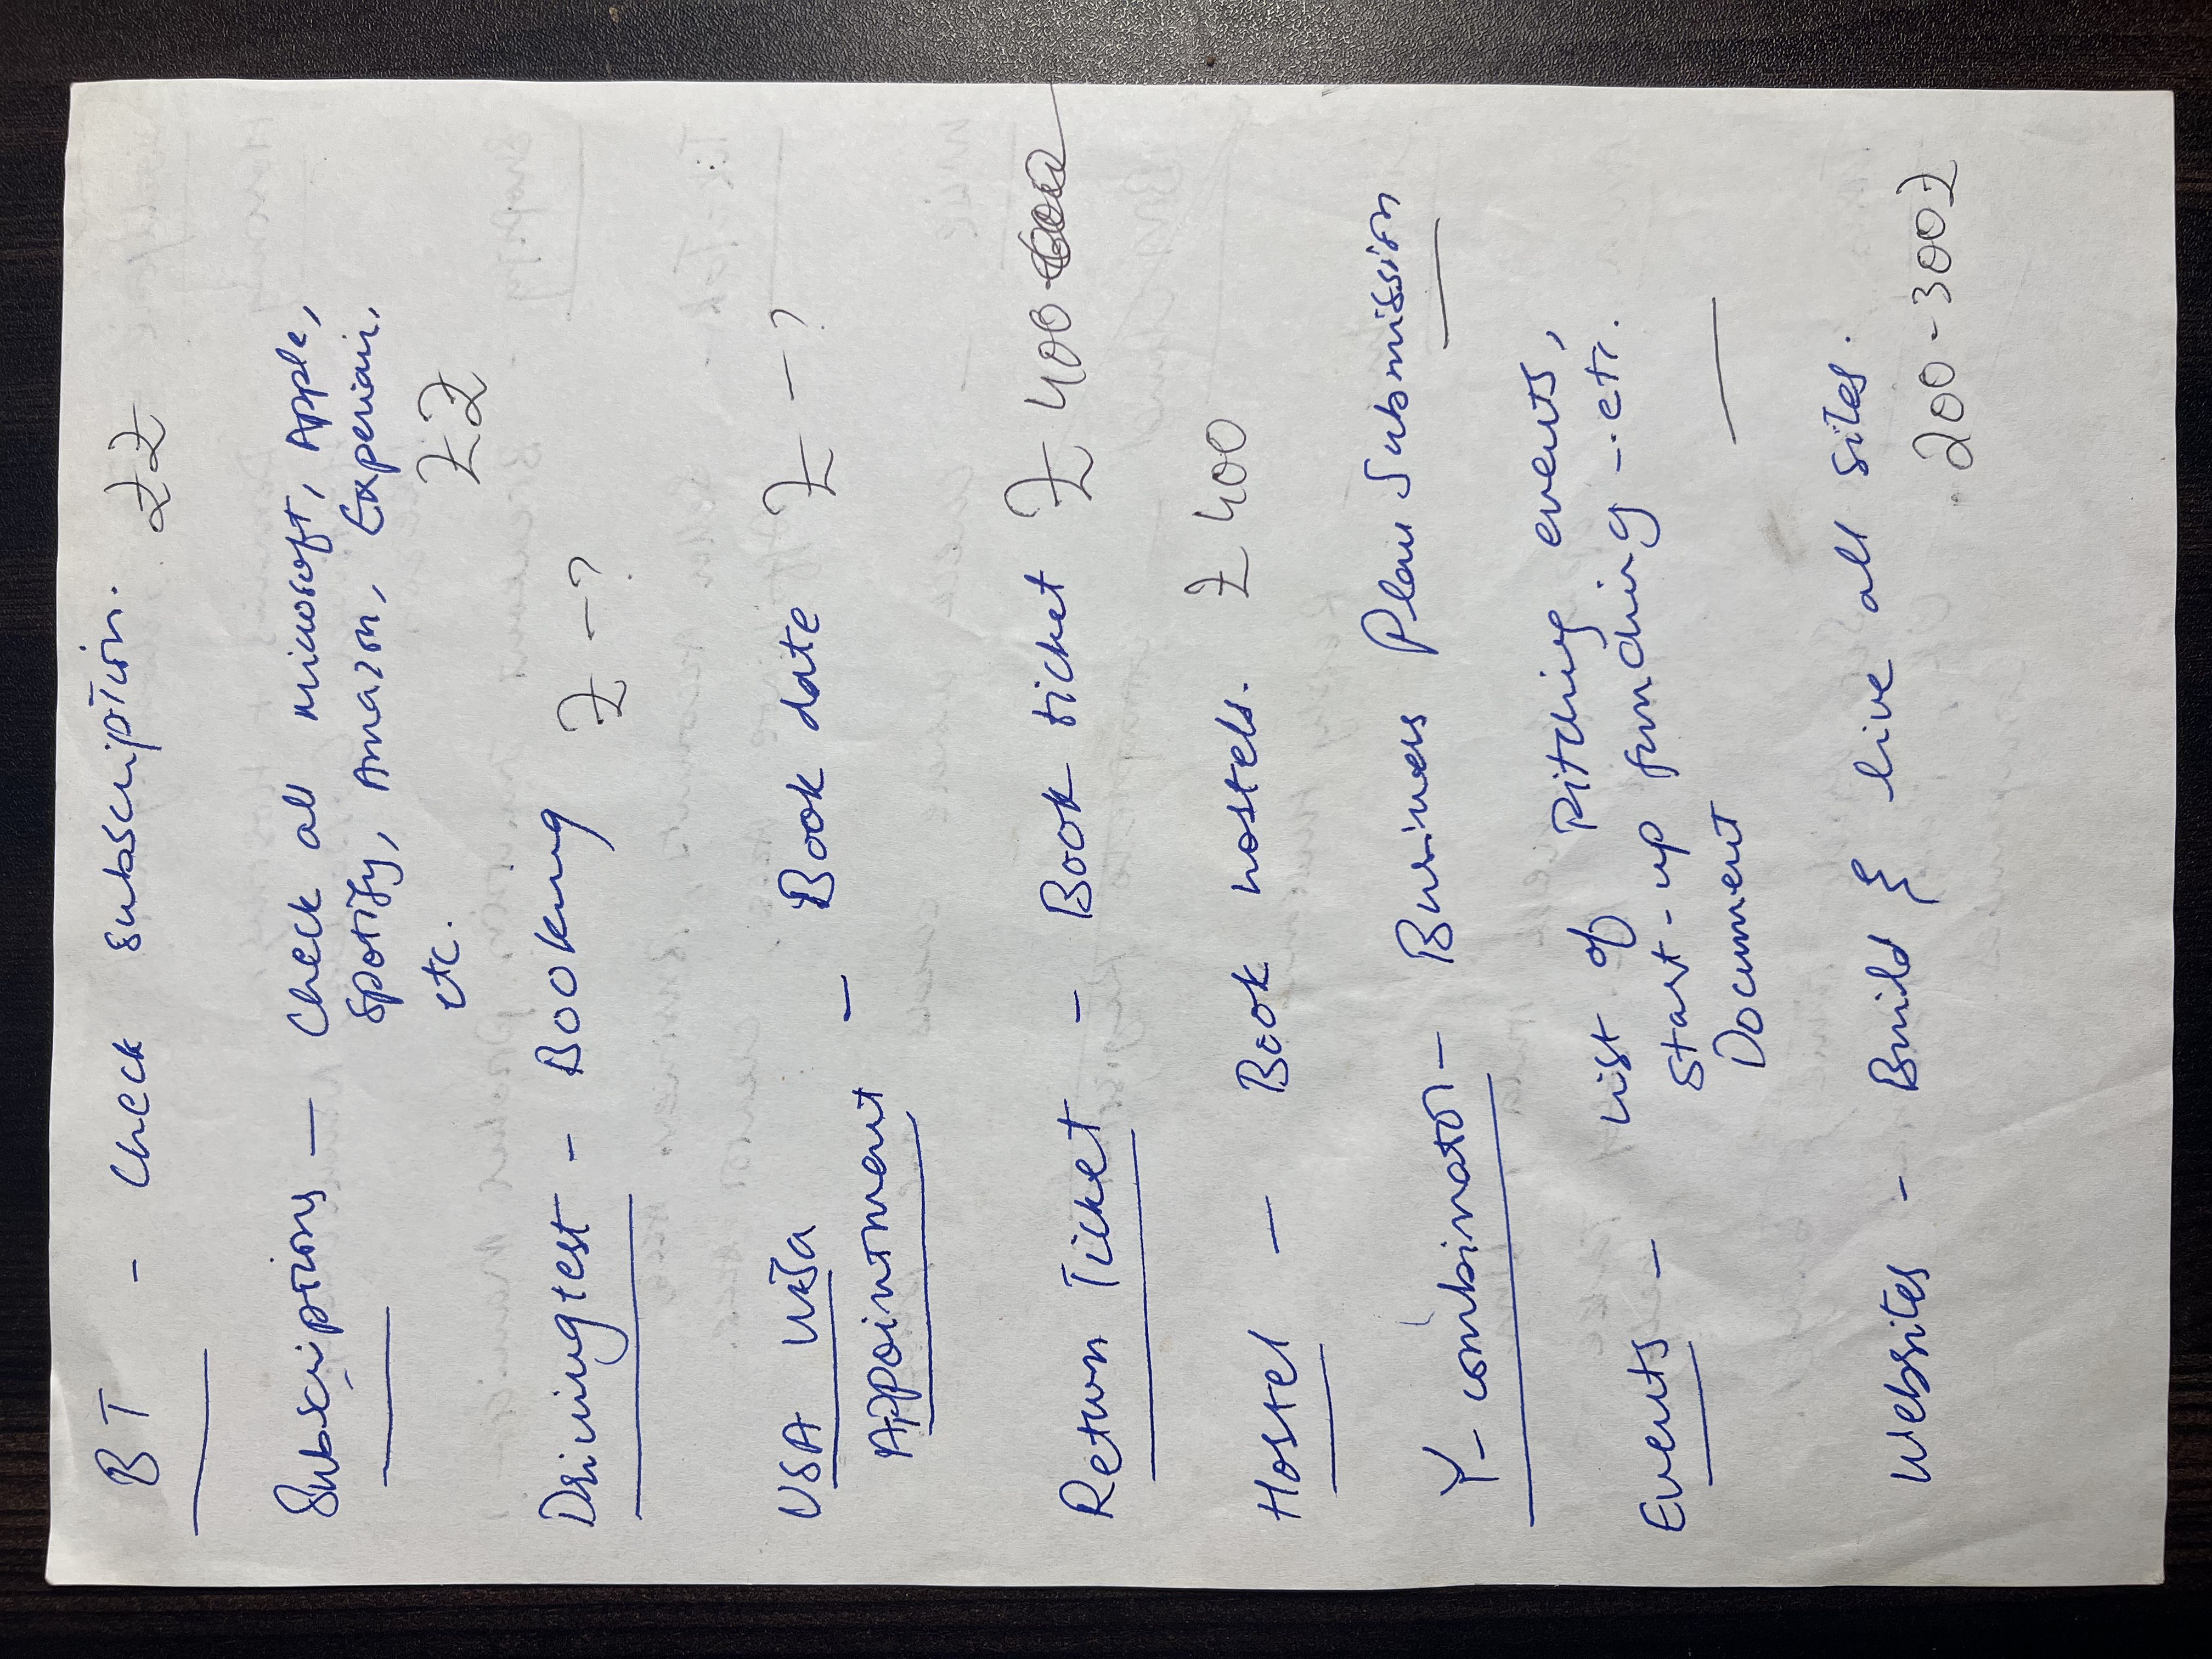 BT - Check subscription. ££
Subscriptions — Check all microsoft, Apple,
Spotify, Amazon, Experian,
etc. ££
Driving test - Booking £ -?
USA Visa
Appointment - Book date £ -?
Return Ticket - Book ticket £ 400
Hostel - Book hostels. £ 400
Y-combinator - Business Plan Submission
Events - List of Pitching events,
Start-up funding -.etc.
Document
Websites - Build } live all sites.
200-300£